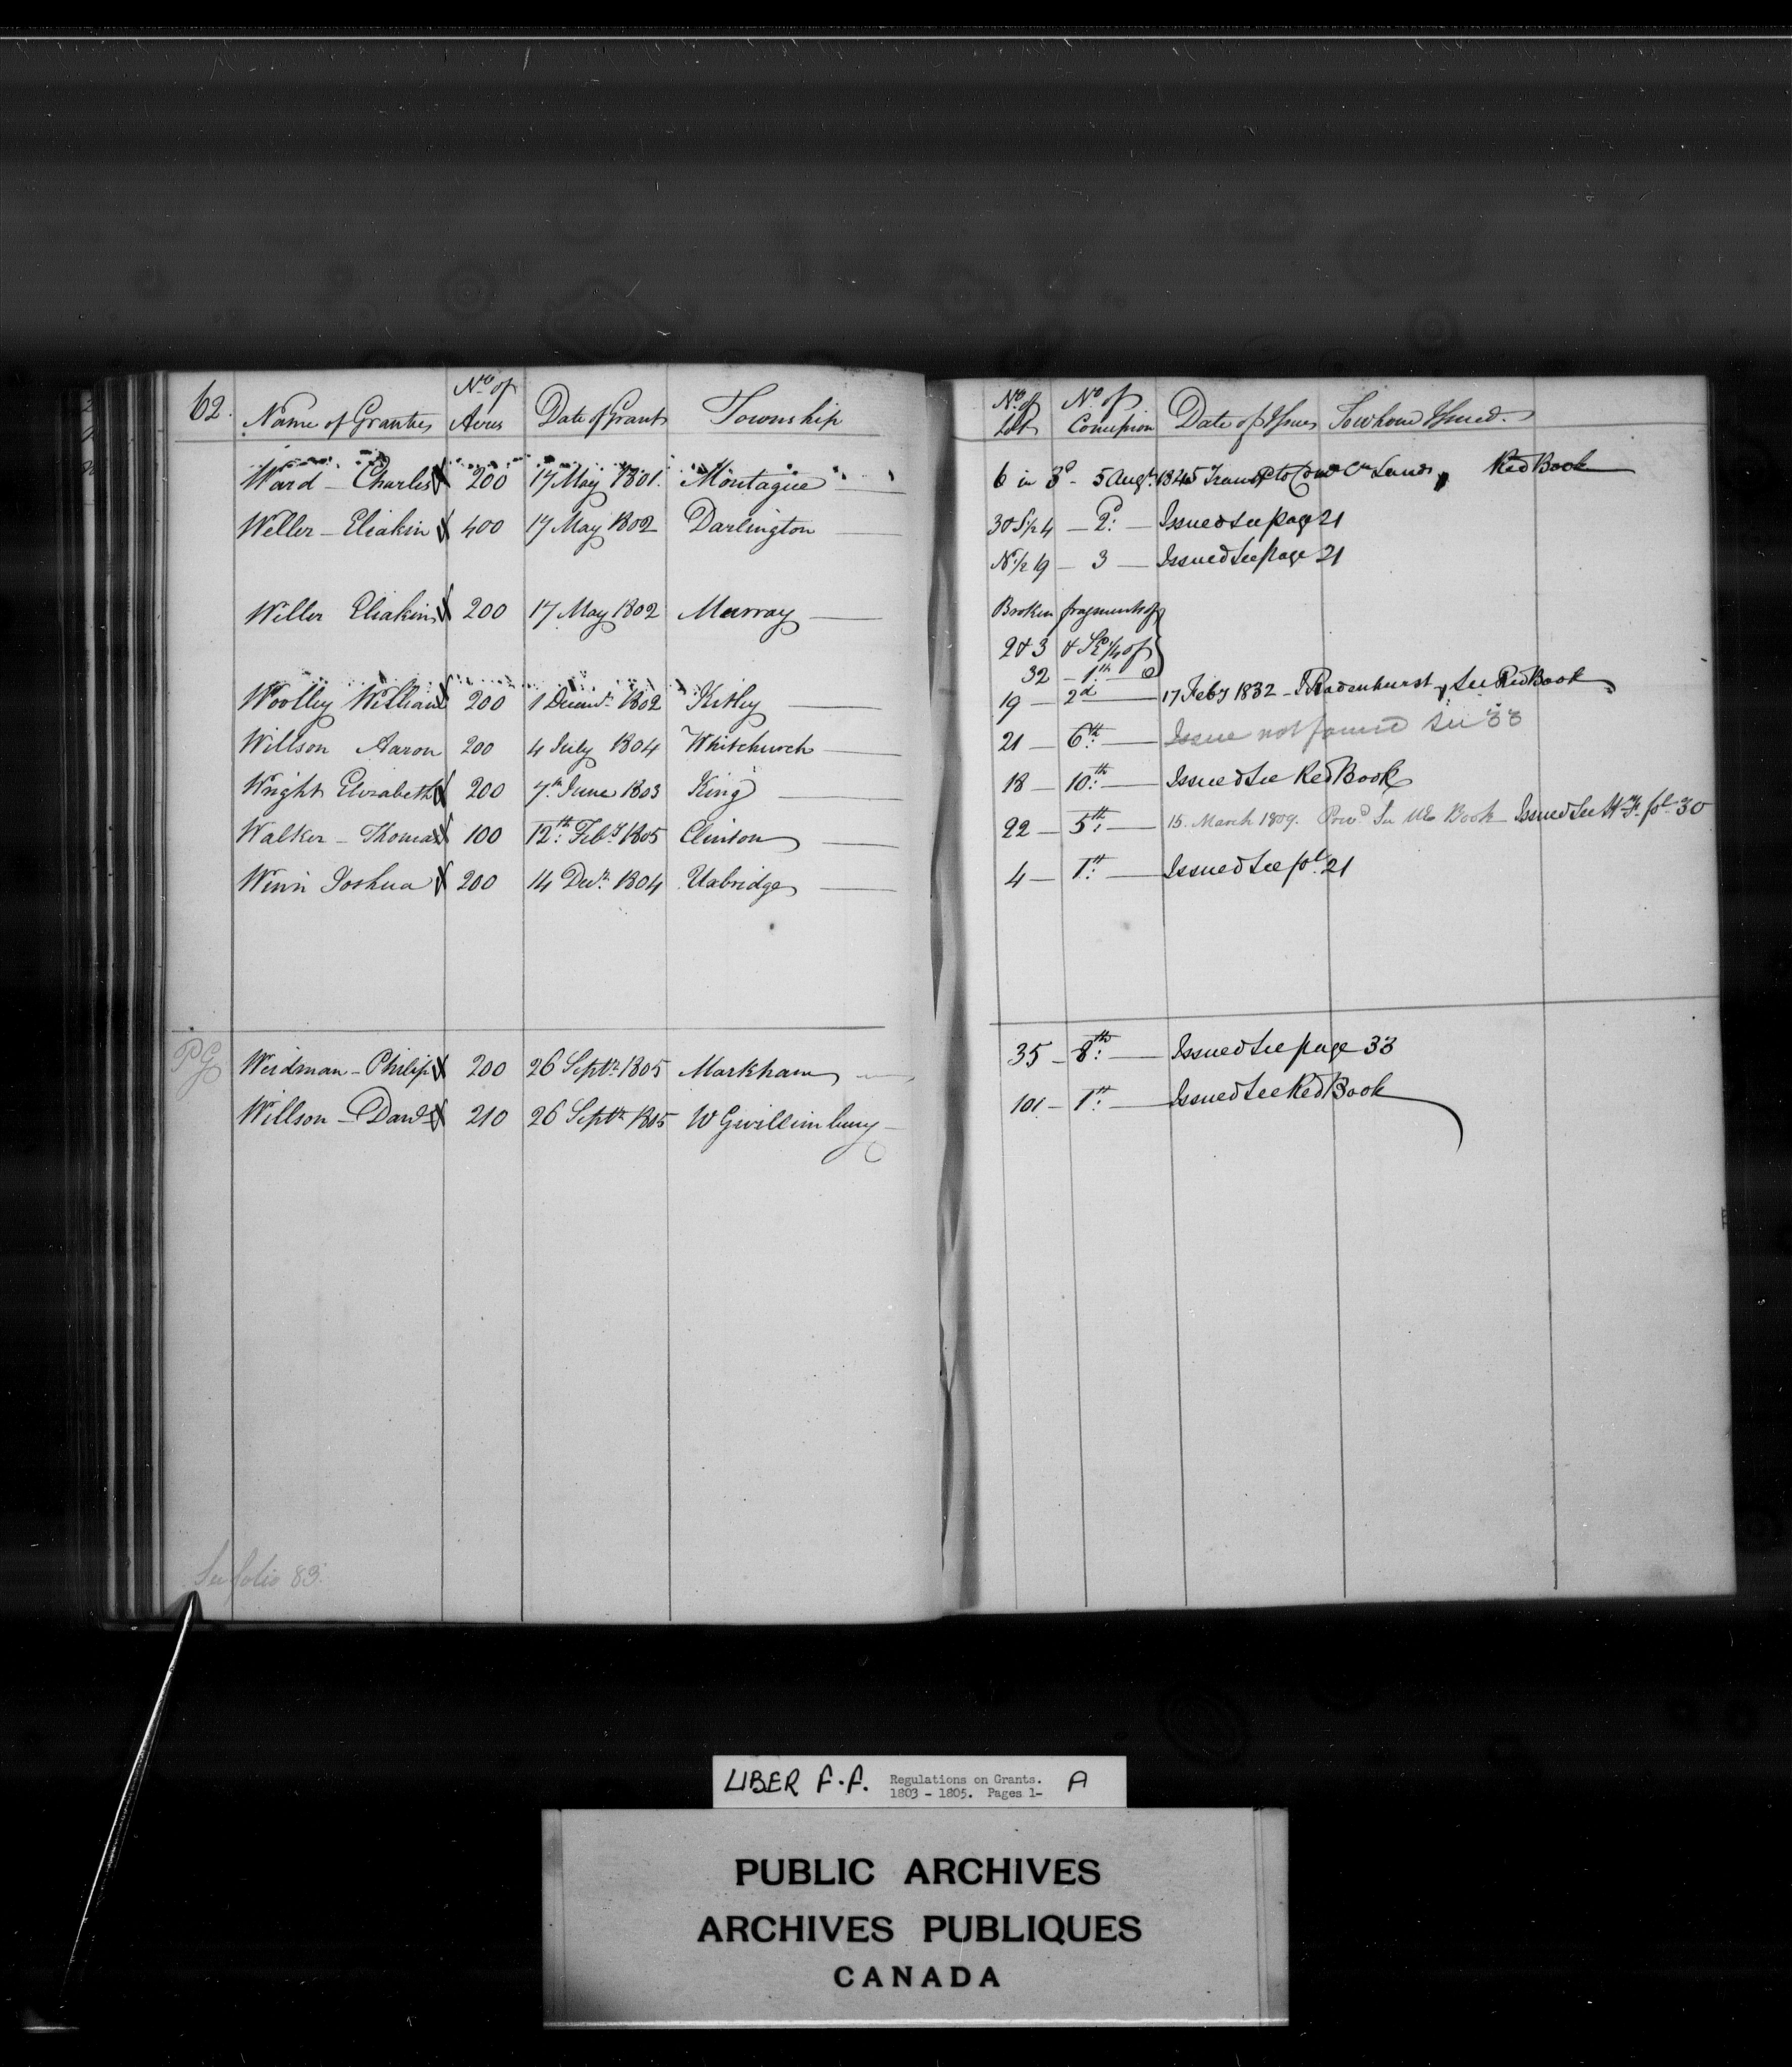 62. Name of Grantee No. of Acres Date of Grant Township No. of Lot No. of Concession Date of Issue To whom Issued.
Ward - Charles 200 17 May 1801. Montague 6 in 3d - 5 Augt. 1845 Red Book
Weller - Eliakin 400 17 May 1802 Darlington 30 S1/2 4 - 2d: - Issued See page 21
N1/2 19 - 3 - Issued See page 21
Weller Eliakin 200 17 May 1802 Murray Broken fragments of
2 & 3 & of
32 - 1st
Woolley William 200 1 Decemr. 1802 Kitley 19 - 2d 17 Feby 1832 - Radenhurst, See Red Book
Willson Aaron 200 4 July 1804 Whitchurch 21 - 6th: Issue not found See 33
Wright Elizabeth 200 7th June 1803 King 18 - 10:th Issued See Red Book
Walker - Thomas 100 12th: Feby. 1805 Clinton 22 - 5th: 15 March 1809. See Book Issued See fol 30
Winn Joshua 200 14 Decr. 1804 Uxbridge 4 - 1st: Issued See fol. 21
PG Weidman - Philip 200 26 Septr. 1805 Markham 35 - 8:th Issued See page 33
Willson - Davd. 210 26 Septr. 1805 W Gwillimbury 101 - 1st: Issued See Red Book
See folio 83.
LIBER F.F. Regulations on Grants. A
1803 - 1805. Pages 1-
PUBLIC ARCHIVES
ARCHIVES PUBLIQUES
CANADA